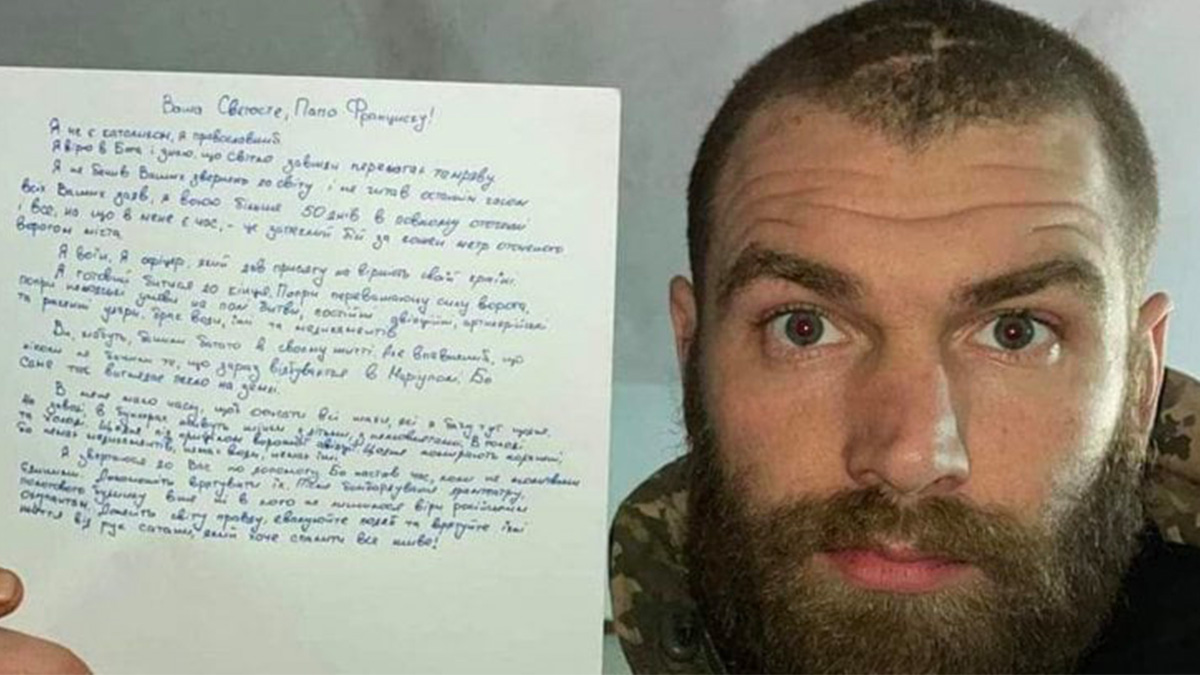 Ваша Святосте, Папо Франциску!
Я не є католиком, я православний.
Я вірю в Бога і знаю, що світло завжди перемагає темряву.
Я не бачив Ваших звернень до світу і не читав останнім часом
всіх Ваших заяв, я воюю більше 50 днів в повному оточенні
і все, на що в мене є час, - це запеклий бій за кожен метр оточеного
ворогом міста.
Я воїн. Я офіцер, який дав присягу на вірність своїй країні.
Я готовий битися до кінця. Попри переважаючу силу ворога,
попри нелюдські умови на полі битви, постійні авіаційні, артилерійські
та ракетні удари, брак води, їжі та медикаментів.
Ви, мабуть, бачили багато в своєму житті. Але впевнений, що
ніколи не бачили те, що зараз відбувається в Маріуполі. Бо
саме так виглядає пекло на землі.
В мене мало часу, щоб описати всі жахи, які я бачу тут щодня.
На заводі в бункерах живуть жінки з дітьми, немовлятами. В холоді
та голоді. Щодня під прицілом ворожої авіації. Щодня помирають поранені,
бо немає медикаментів, немає води, немає їжі.
Я звертаюся до Вас по допомогу. Бо настав час, коли не молитвами
єдиними. Допоможіть врятувати їх. Після бомбардування драмтеатру,
пологового будинку вже ні в кого не лишилося віри російським
окупантам. Донесіть світу правду, евакуюйте людей та врятуйте їхні
життя від рук сатани, який хоче спалити все живе!